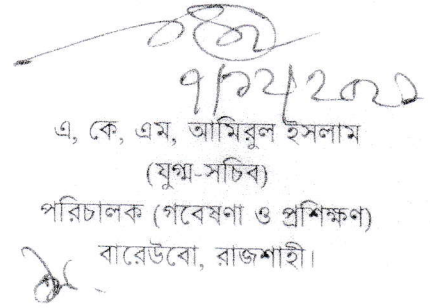 এ, কে, এম, আমিরুল ইসলাম
(যুগ্ম-সচিব)
পরিচালক (গবেষণা ও প্রশিক্ষণ)
বারেউবো, রাজশাহী।